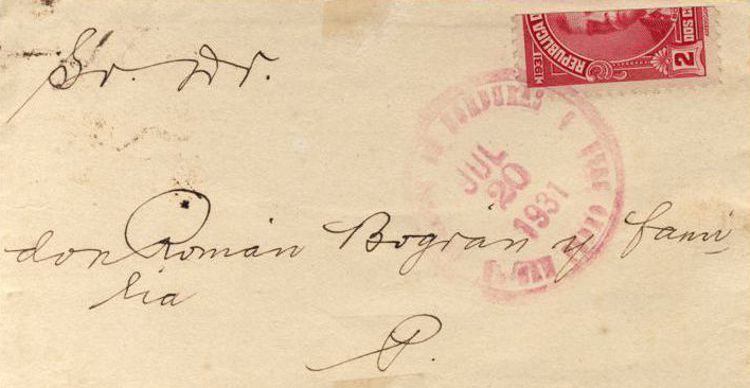 Sr. Dr.
don Román Bográn y fami-
lia
P.
REPUBLICA D
2
DOS C
HONDURAS
JUL
20
1931